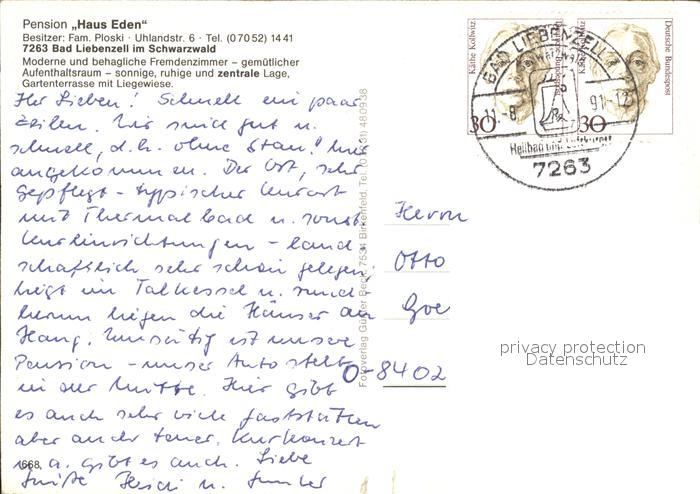 Pension „Haus Eden“
Besitzer: Fam. Ploski · Uhlandstr. 6 · Tel. (0 70 52) 14 41
7263 Bad Liebenzell im Schwarzwald
Moderne und behagliche Fremdenzimmer – gemütlicher
Aufenthaltsraum – sonnige, ruhige und zentrale Lage,
Gartenterrasse mit Liegewiese.
Ihr Lieben! Schnell ein paar
Zeilen. Wir sind gut u.
schnell, d.h. ohne Stau! hier
angekommen. Der Ort, sehr
gepflegt – typischer Kurort
mit Thermalbad u. sonst.
Kureinrichtungen – land
schaftlich sehr schön gelegen,
liegt im Talkessel u. rund
herum liegen die Häuser am
Hang. ist unsere
Pension – unser Auto steht
in der Mitte. Hier gibt
es auch sehr viele Gaststätten
aber auch teuer. Kurkonzert
u. a. gibt es auch. Liebe
Grüße Heidi u.
1668
Fotoverlag Günter Beck, 7534 Birkenfeld, Tel. (0 72 31) 480938
Käthe Kollwitz
Deutsche Bundespost
30
30
BAD LIEBENZELL
11.-8.
91.-12
Heilbad und Luftkurort
7263
Herrn
Otto
Goe
0-8402
privacy protection
Datenschutz